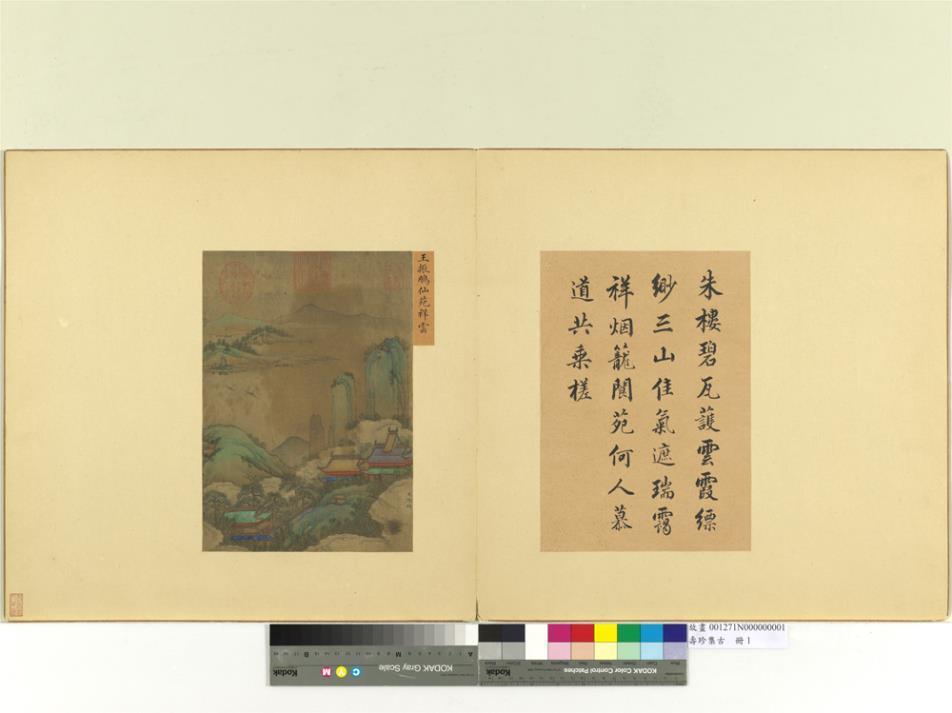 朱樓碧瓦護雲霞縹
緲三山佳氣遮瑞靄
祥烟籠閬苑何人慕
道共乘槎
王振鵬仙苑祥雲
故畫 001271N000000001
壽珍集古 冊 1
KODAK Gray Scale
KODAK Color Control Patches
Kodak
C Y M
Kodak